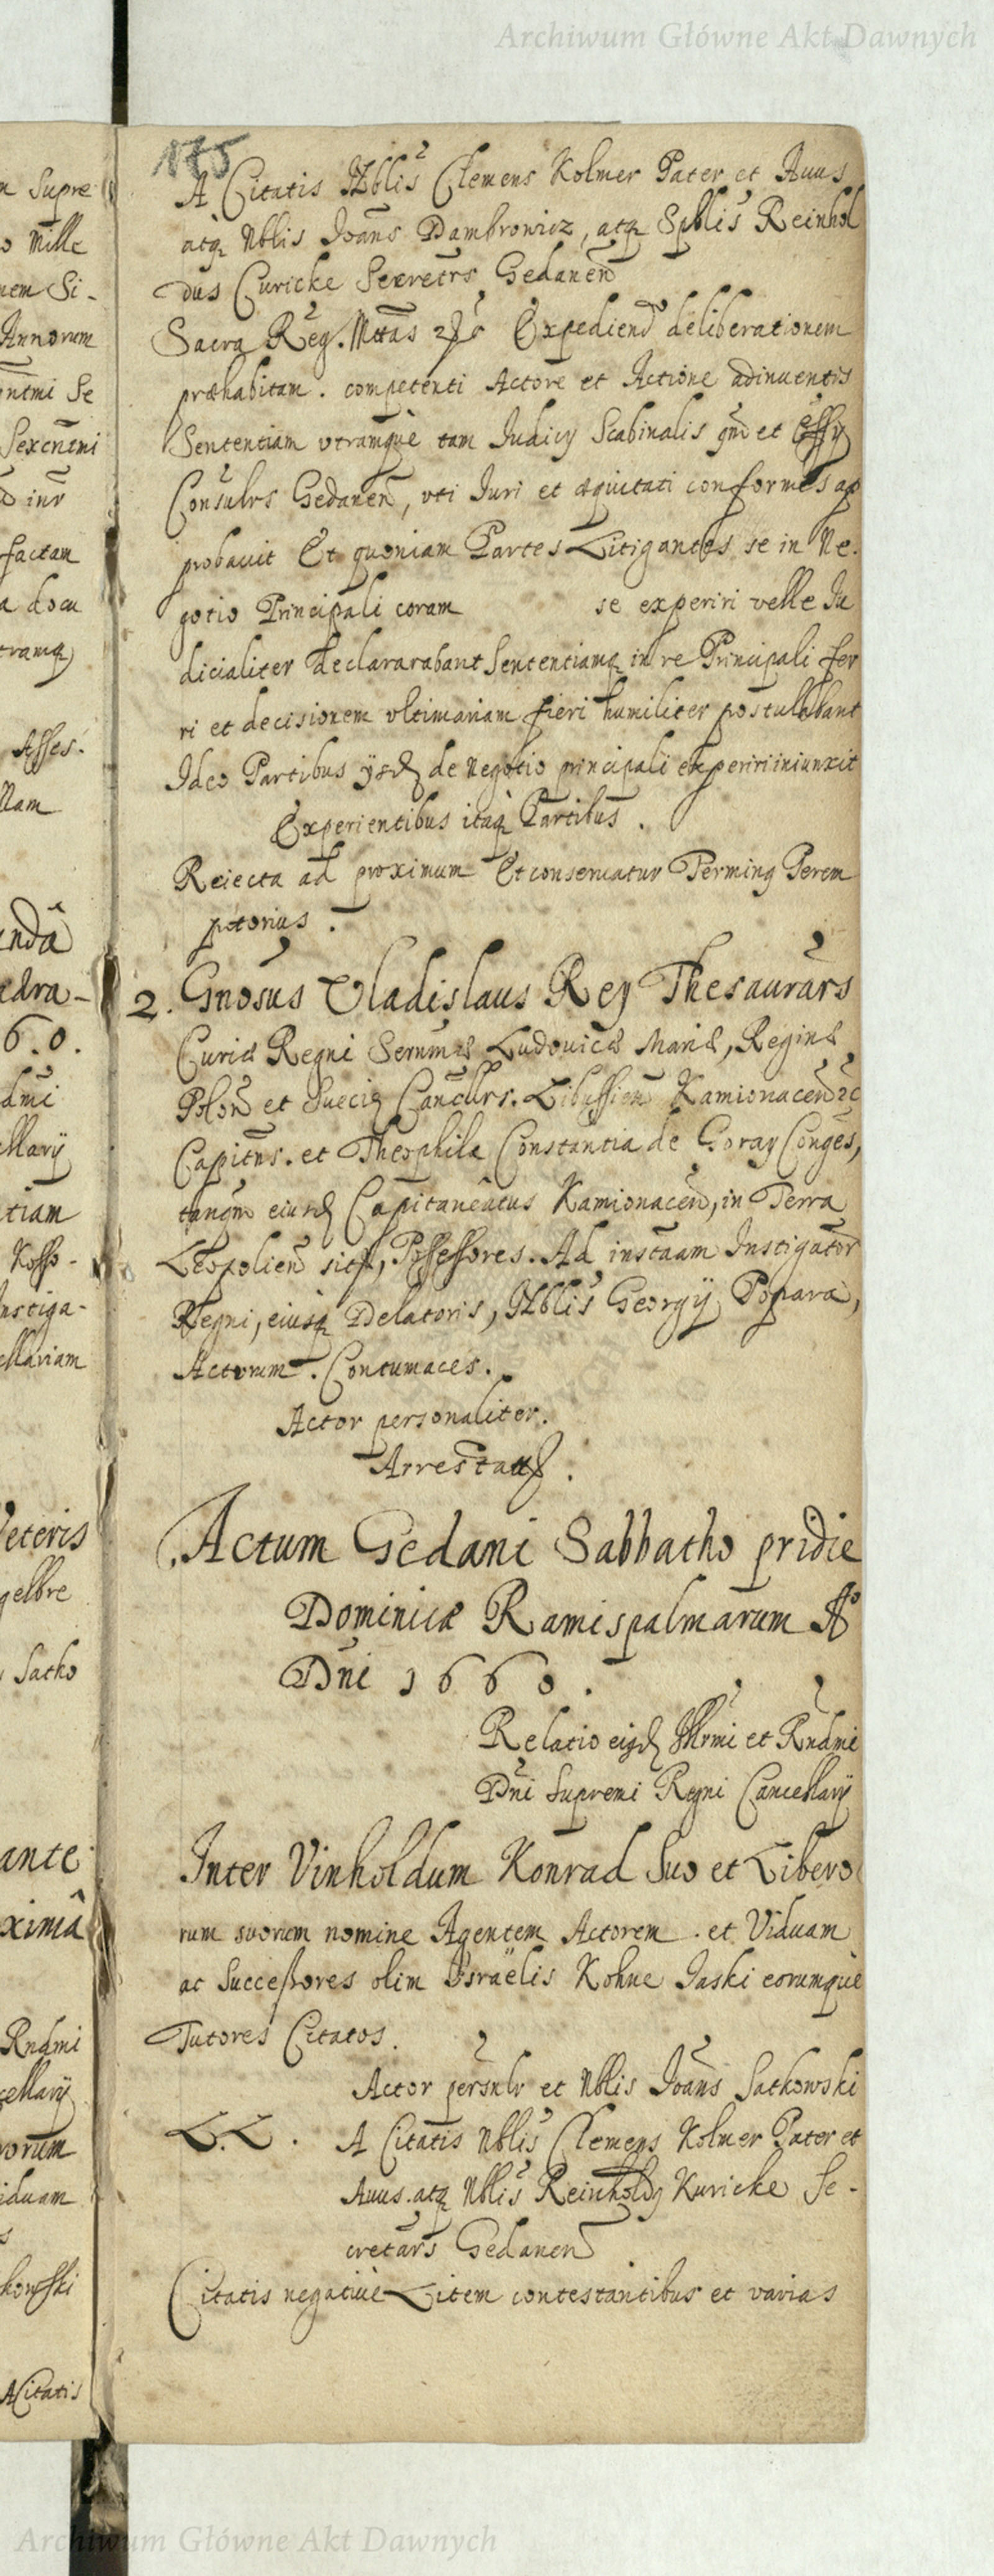 Archiwum Główne Akt Dawnych
175
A Citatis Nblis Clemens Kolmer Pater et Auus
atq Nblis Joans Dambrowicz, atq Spblis Reinhol
dus Curicke Secretrs Gedanen
Sacra Reg. Mttas Expediend deliberationem
præhabitam. competenti Actore et Actione adinuentis
Sententiam vtramque tam Judicij Scabinalis qm et
Consulrs Gedanen, vti Juri et æquitati conformes ap
probauit Et quoniam Partes Litigantes se in Ne.
gotio Principali coram se experiri velle Ju
dicialiter declararabant Sententiamq in re Principali fer
ri et decisionem vltimariam fieri humiliter postulabant
Ideo Partibus ijsd de Negotio principali experiri iniunxit
Experientibus itaq Partibus.
Reiecta ad proximum Et conseruatur Terming Perem
ptorius.
2. Gnosus Vladislaus Rey Thesaurars
Curiæ Regni Serenmæ Ludouicæ Mariæ, Reginæ
Polon et Sueciæ Cancllrs. Libussien Kamionacen
Capitns. et Theophila Constantia de Goray Conges,
tanqm eiusd Capitaneatus Kamionacen, in Terra
Leopolien siti, Possessores. Ad instaam Instigator
Regni, eiusq Delatoris, Nblis Georgij Popara,
Actorum. Contumaces.
Actor personaliter.
Arrestatt.
Actum Gedani Sabbatho pridie
Dominicæ Ramispalmarum Ao
Dni 1660.
Relatio eigd Illrmi et Rndmi
Dni Supremi Regni Cancellarij
Inter Vinholdum Konrad Suo et Libero
rum suorum nomine Agentem Actorem. et Viduam
ac Successores olim Israëlis Kohne Jaski eorumque
Tutores Citatos.
Actor persnlr et Nblis Joans Satkowski
L.L. A Citatis Nblis Clemens Kolmer Pater et
Auus. atq Nblis Reinholdg Kuricke Se-
cretars Gedanen
Citatis negatiue Litem contestantibus et varias
Archiwum Główne Akt Dawnych